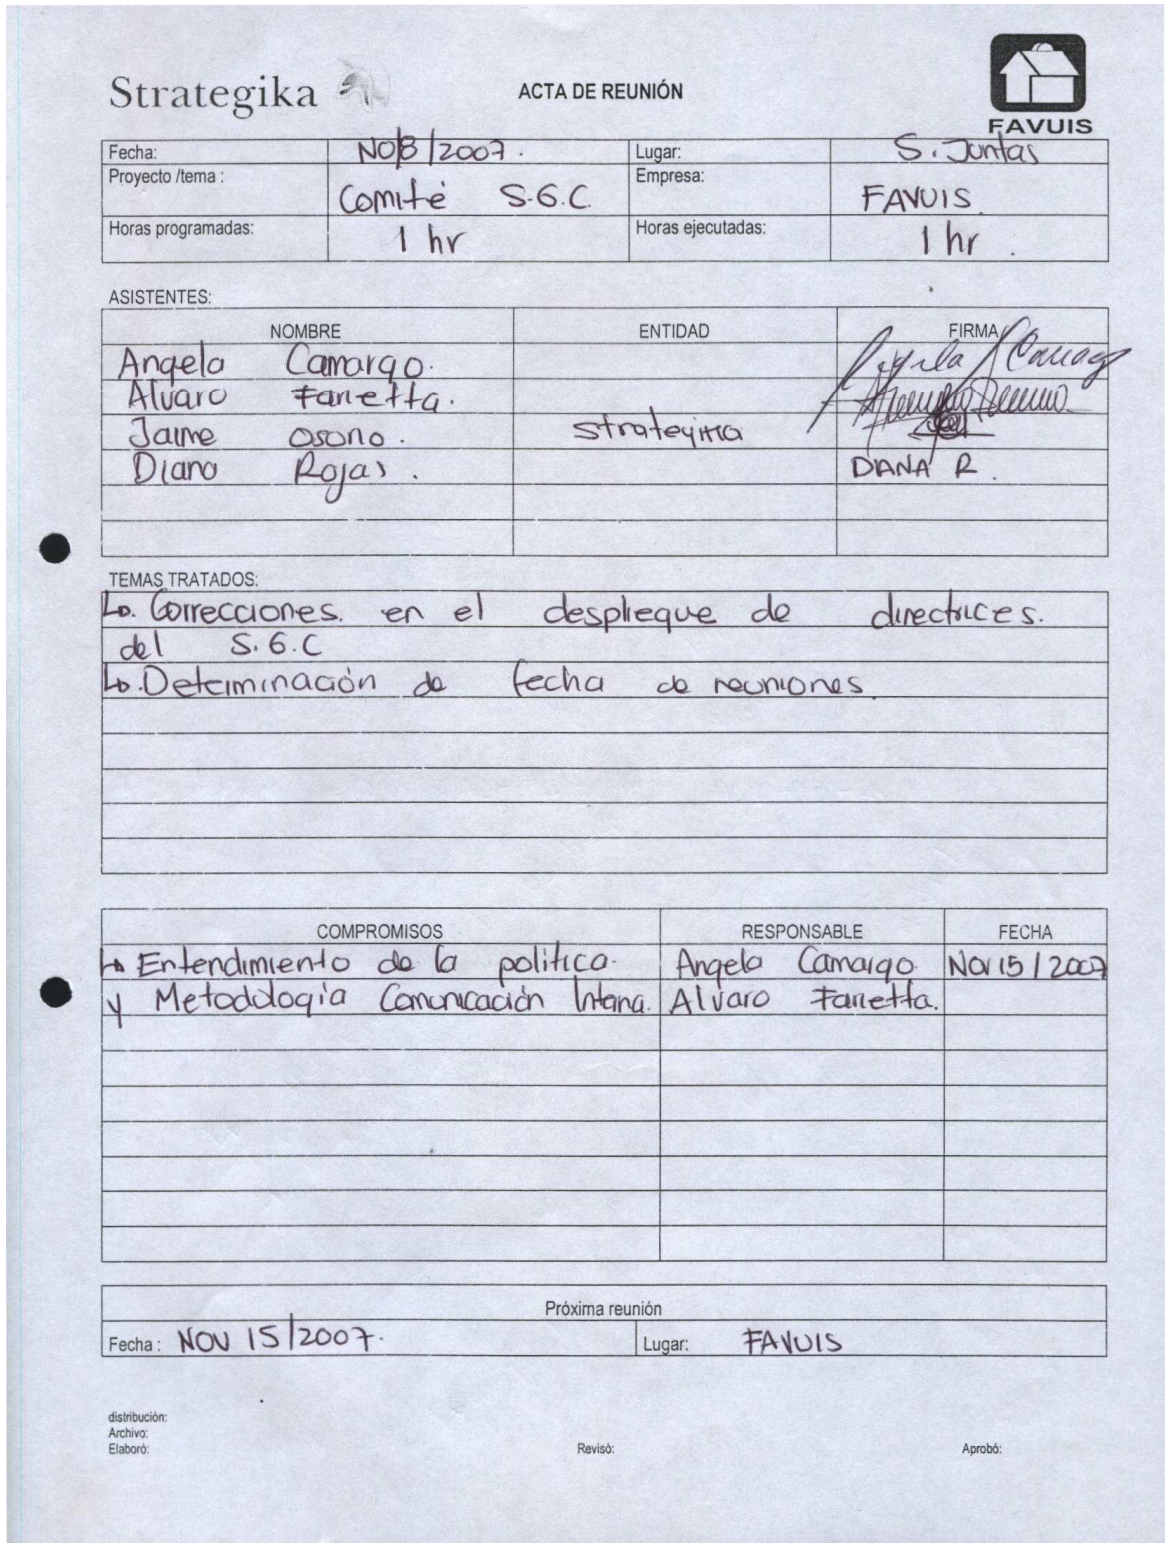 Strategika
ACTA DE REUNIÓN
FAVUIS
Fecha: NO/8/2007. Lugar: S. Juntas
Proyecto /tema : Comité S.G.C. Empresa: FAVUIS
Horas programadas: 1 hr Horas ejecutadas: 1 hr .
ASISTENTES:
NOMBRE ENTIDAD FIRMA
Angela Camargo. Angela Camargo
Alvaro Fanetta.
Jaime Osorio. Strategika
Diana Rojas. DIANA R.
TEMAS TRATADOS:
↳. Correcciones. en el despliegue de directrices.
del S.G.C
↳. Determinación de fecha de reuniones.
COMPROMISOS RESPONSABLE FECHA
↳ Entendimiento de la politica. Angela Camargo Nov 15/2007
y Metodología Comunicación Interna. Alvaro Fanetta.
Próxima reunión
Fecha : NOV 15/2007. Lugar: FAVUIS
distribución:
Archivo:
Elaboró: Revisó: Aprobó: